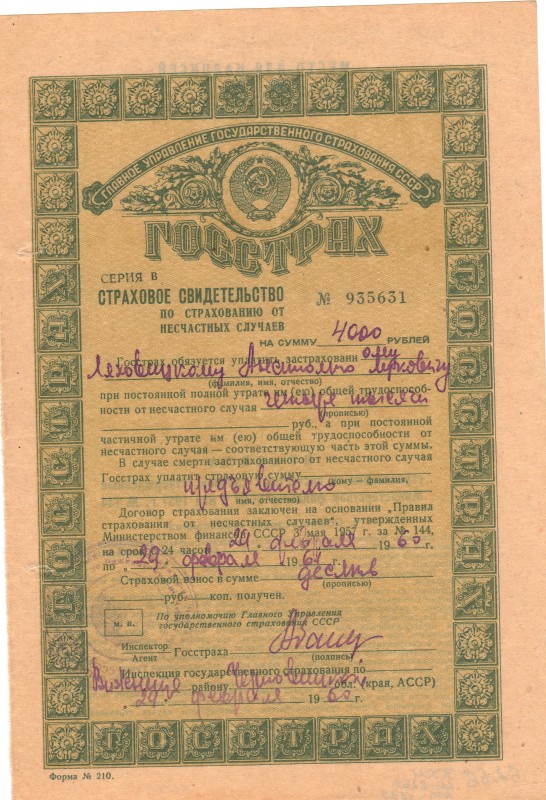 ГЛАВНОЕ УПРАВЛЕНИЕ ГОСУДАРСТВЕННОГО СТРАХОВАНИЯ СССР
ГОССТРАХ
СЕРИЯ В
СТРАХОВОЕ СВИДЕТЕЛЬСТВО
ПО СТРАХОВАНИЮ ОТ
НЕСЧАСТНЫХ СЛУЧАЕВ
№ 935631
НА СУММУ 4000 РУБЛЕЙ
Госстрах обязуется уплатить застрахован ому
Ляховецкому Анатолию Марковичу
(фамилия, имя, отчество)
при постоянной полной утрате им (ею) общей трудоспособ-
ности от несчастного случая четыре тысячи
(прописью)
руб., а при постоянной
частичной утрате им (ею) общей трудоспособности от
несчастного случая — соответствующую часть этой суммы.
В случае смерти застрахованного от несчастного случая
Госстрах уплатит страховую сумму
(кому — фамилия,
предъявителю
имя, отчество)
Договор страхования заключен на основании „Правил
страхования от несчастных случаев", утвержденных
Министерством финансов СССР 3 мая 1957 г. за № 144,
на срок с 24 часов „29" февраля 1960 г.
по „29" февраля 1961 г.
Страховой взнос в сумме десять
(прописью)
руб. коп. получен.
М. П.
По уполномочию Главного Управления
государственного страхования СССР
Инспектор
Агент
Госстраха
(подпись)
Инспекция государственного страхования по
району Черновицкой обл. (края, АССР)
„29" февраля 1960 г.
ГОССТРАХ
Форма № 210.